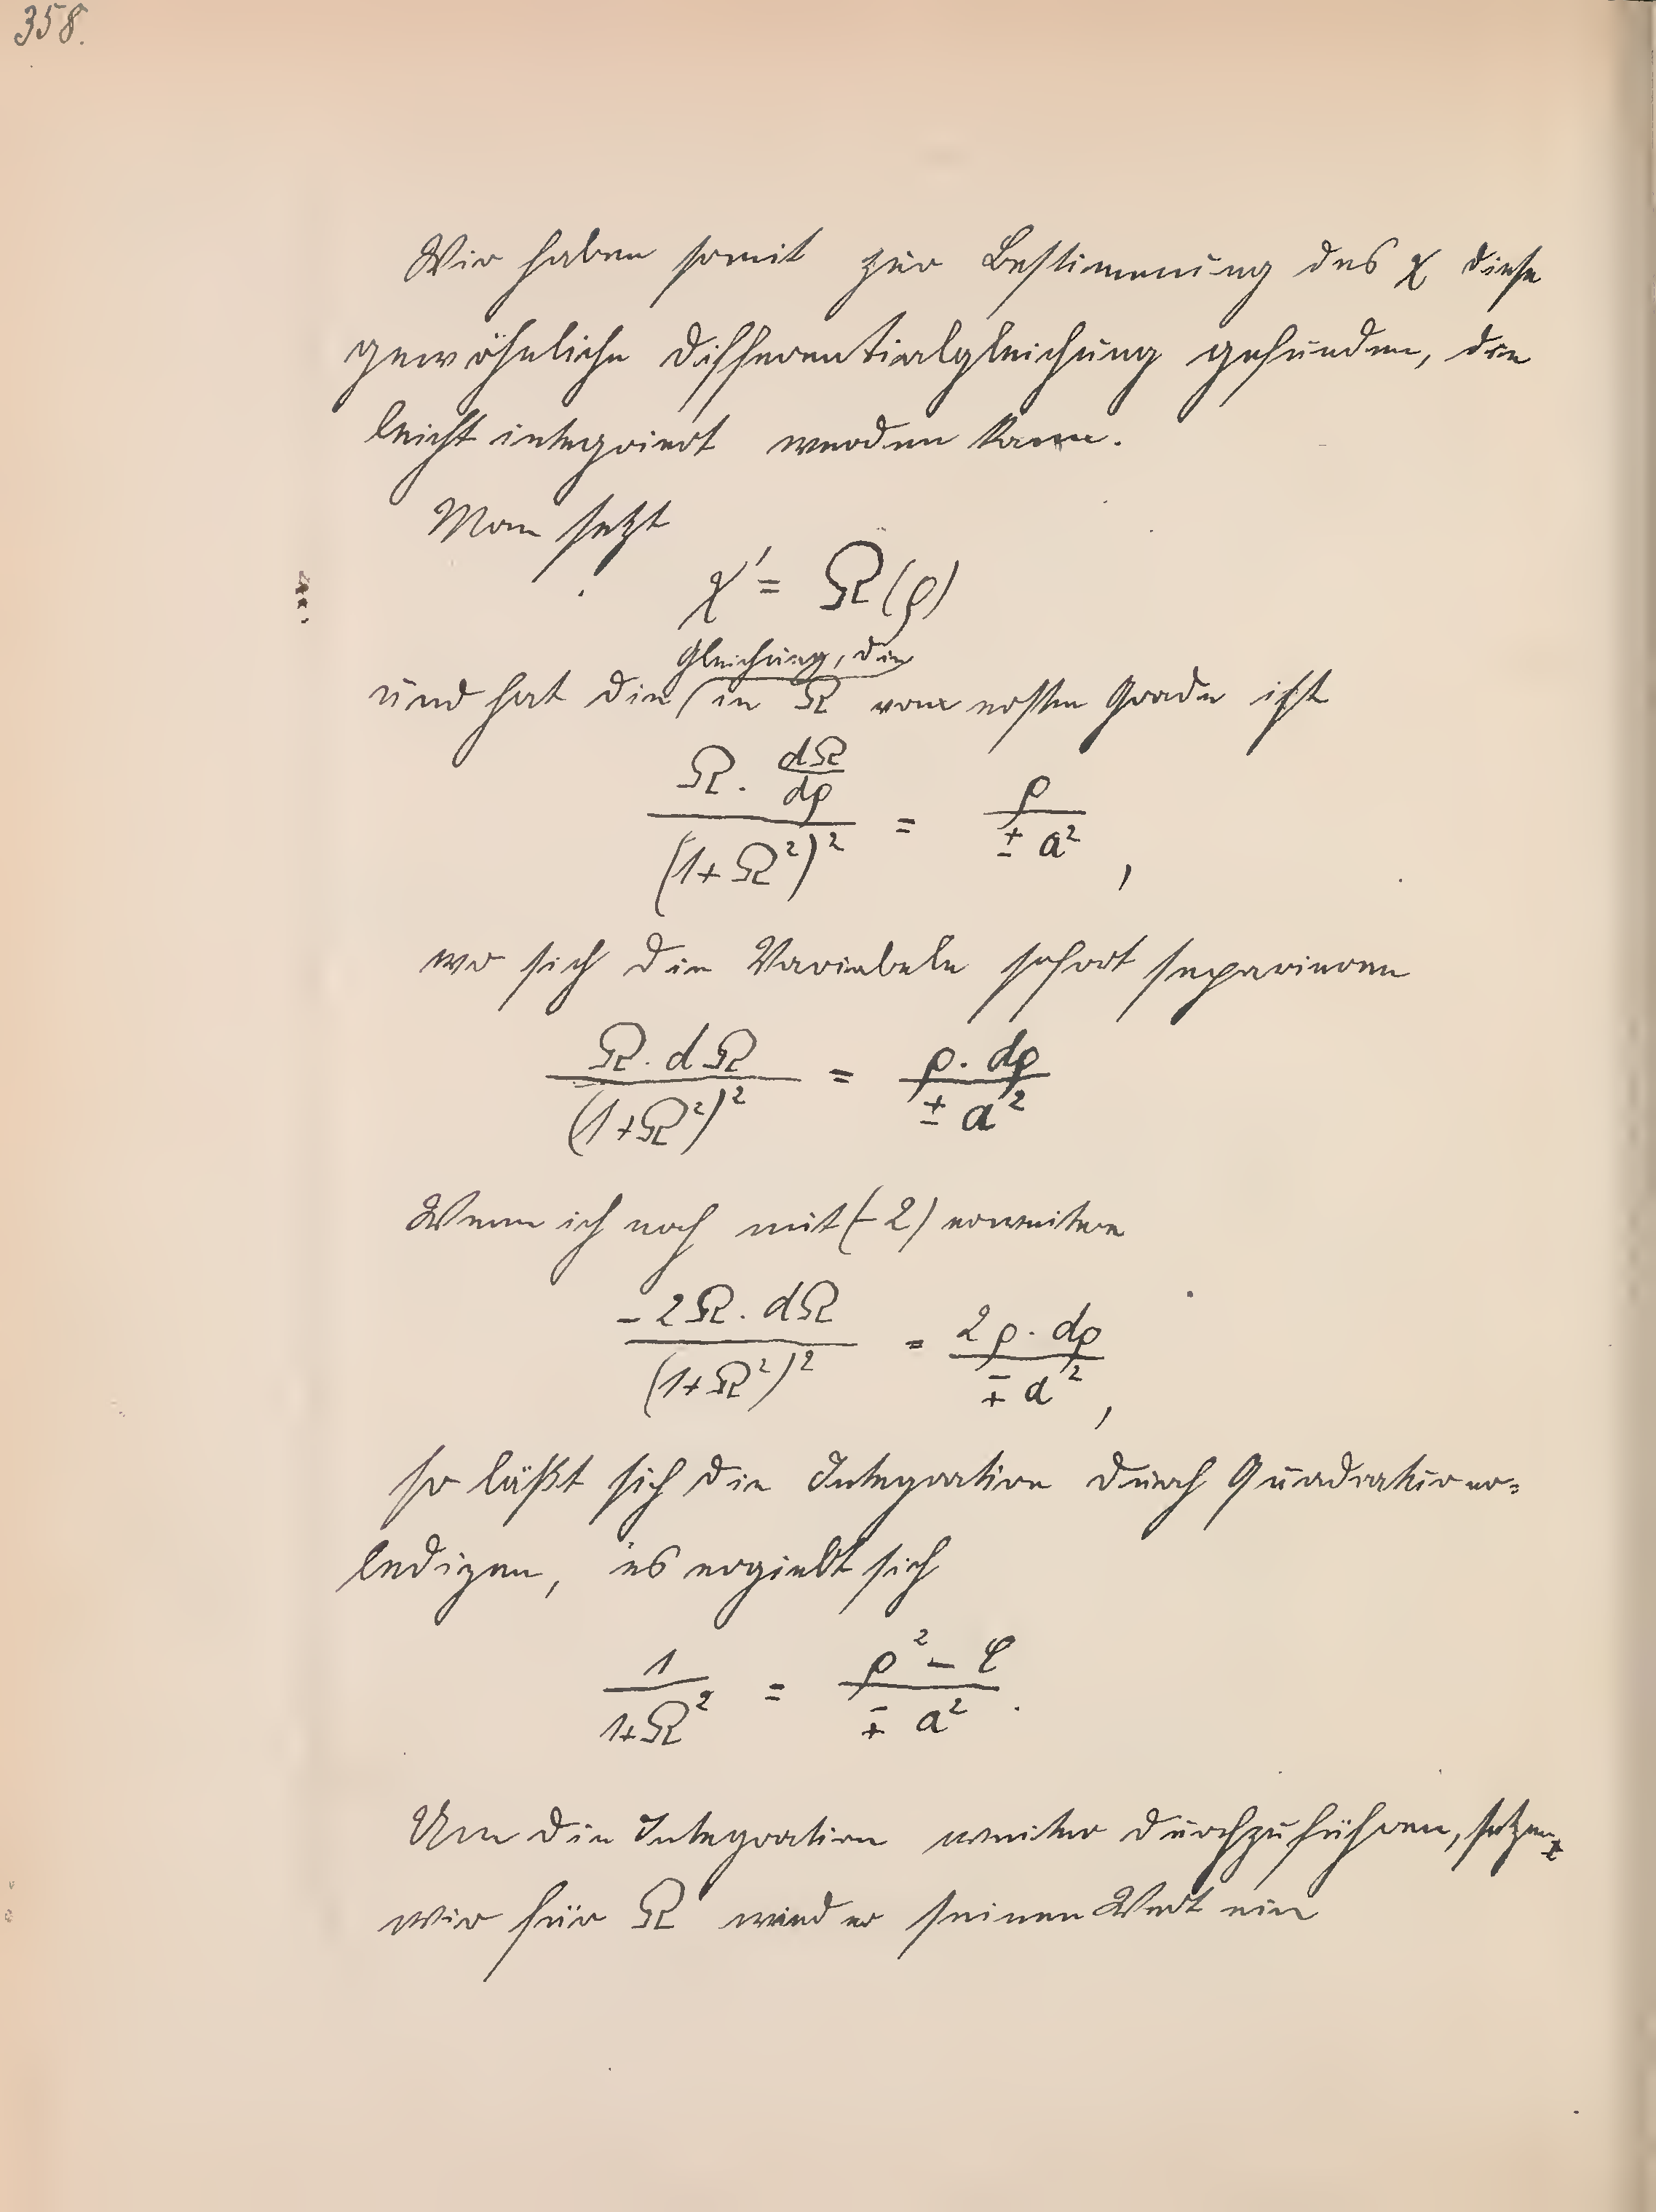 358.
Wir haben somit zur Bestimmung des χ diese
gewöhnliche Differentialgleichung gefunden, die
leicht integriert werden kann.
Man setzt
χ' = Ω(ρ)
Gleichung, die
und hat die in Ω vom ersten Grade ist
Ω · dΩ/dρ / (1+Ω²)² = ρ / ± a² ,
wo sich die Variabeln sofort separieren
Ω · dΩ / (1+Ω²)² = ρ · dρ / ± a²
Wenn ich noch mit (-2) erweitere
-2Ω · dΩ / (1+Ω²)² = 2ρ · dρ / ∓ a² ,
so läßt sich die Integration durch Quadratur er=
ledigen, es ergiebt sich
1 / 1+Ω² = ρ² - C / ∓ a² .
Um die Integration weiter durchzuführen, setzen
wir für Ω wieder seinen Wert ein